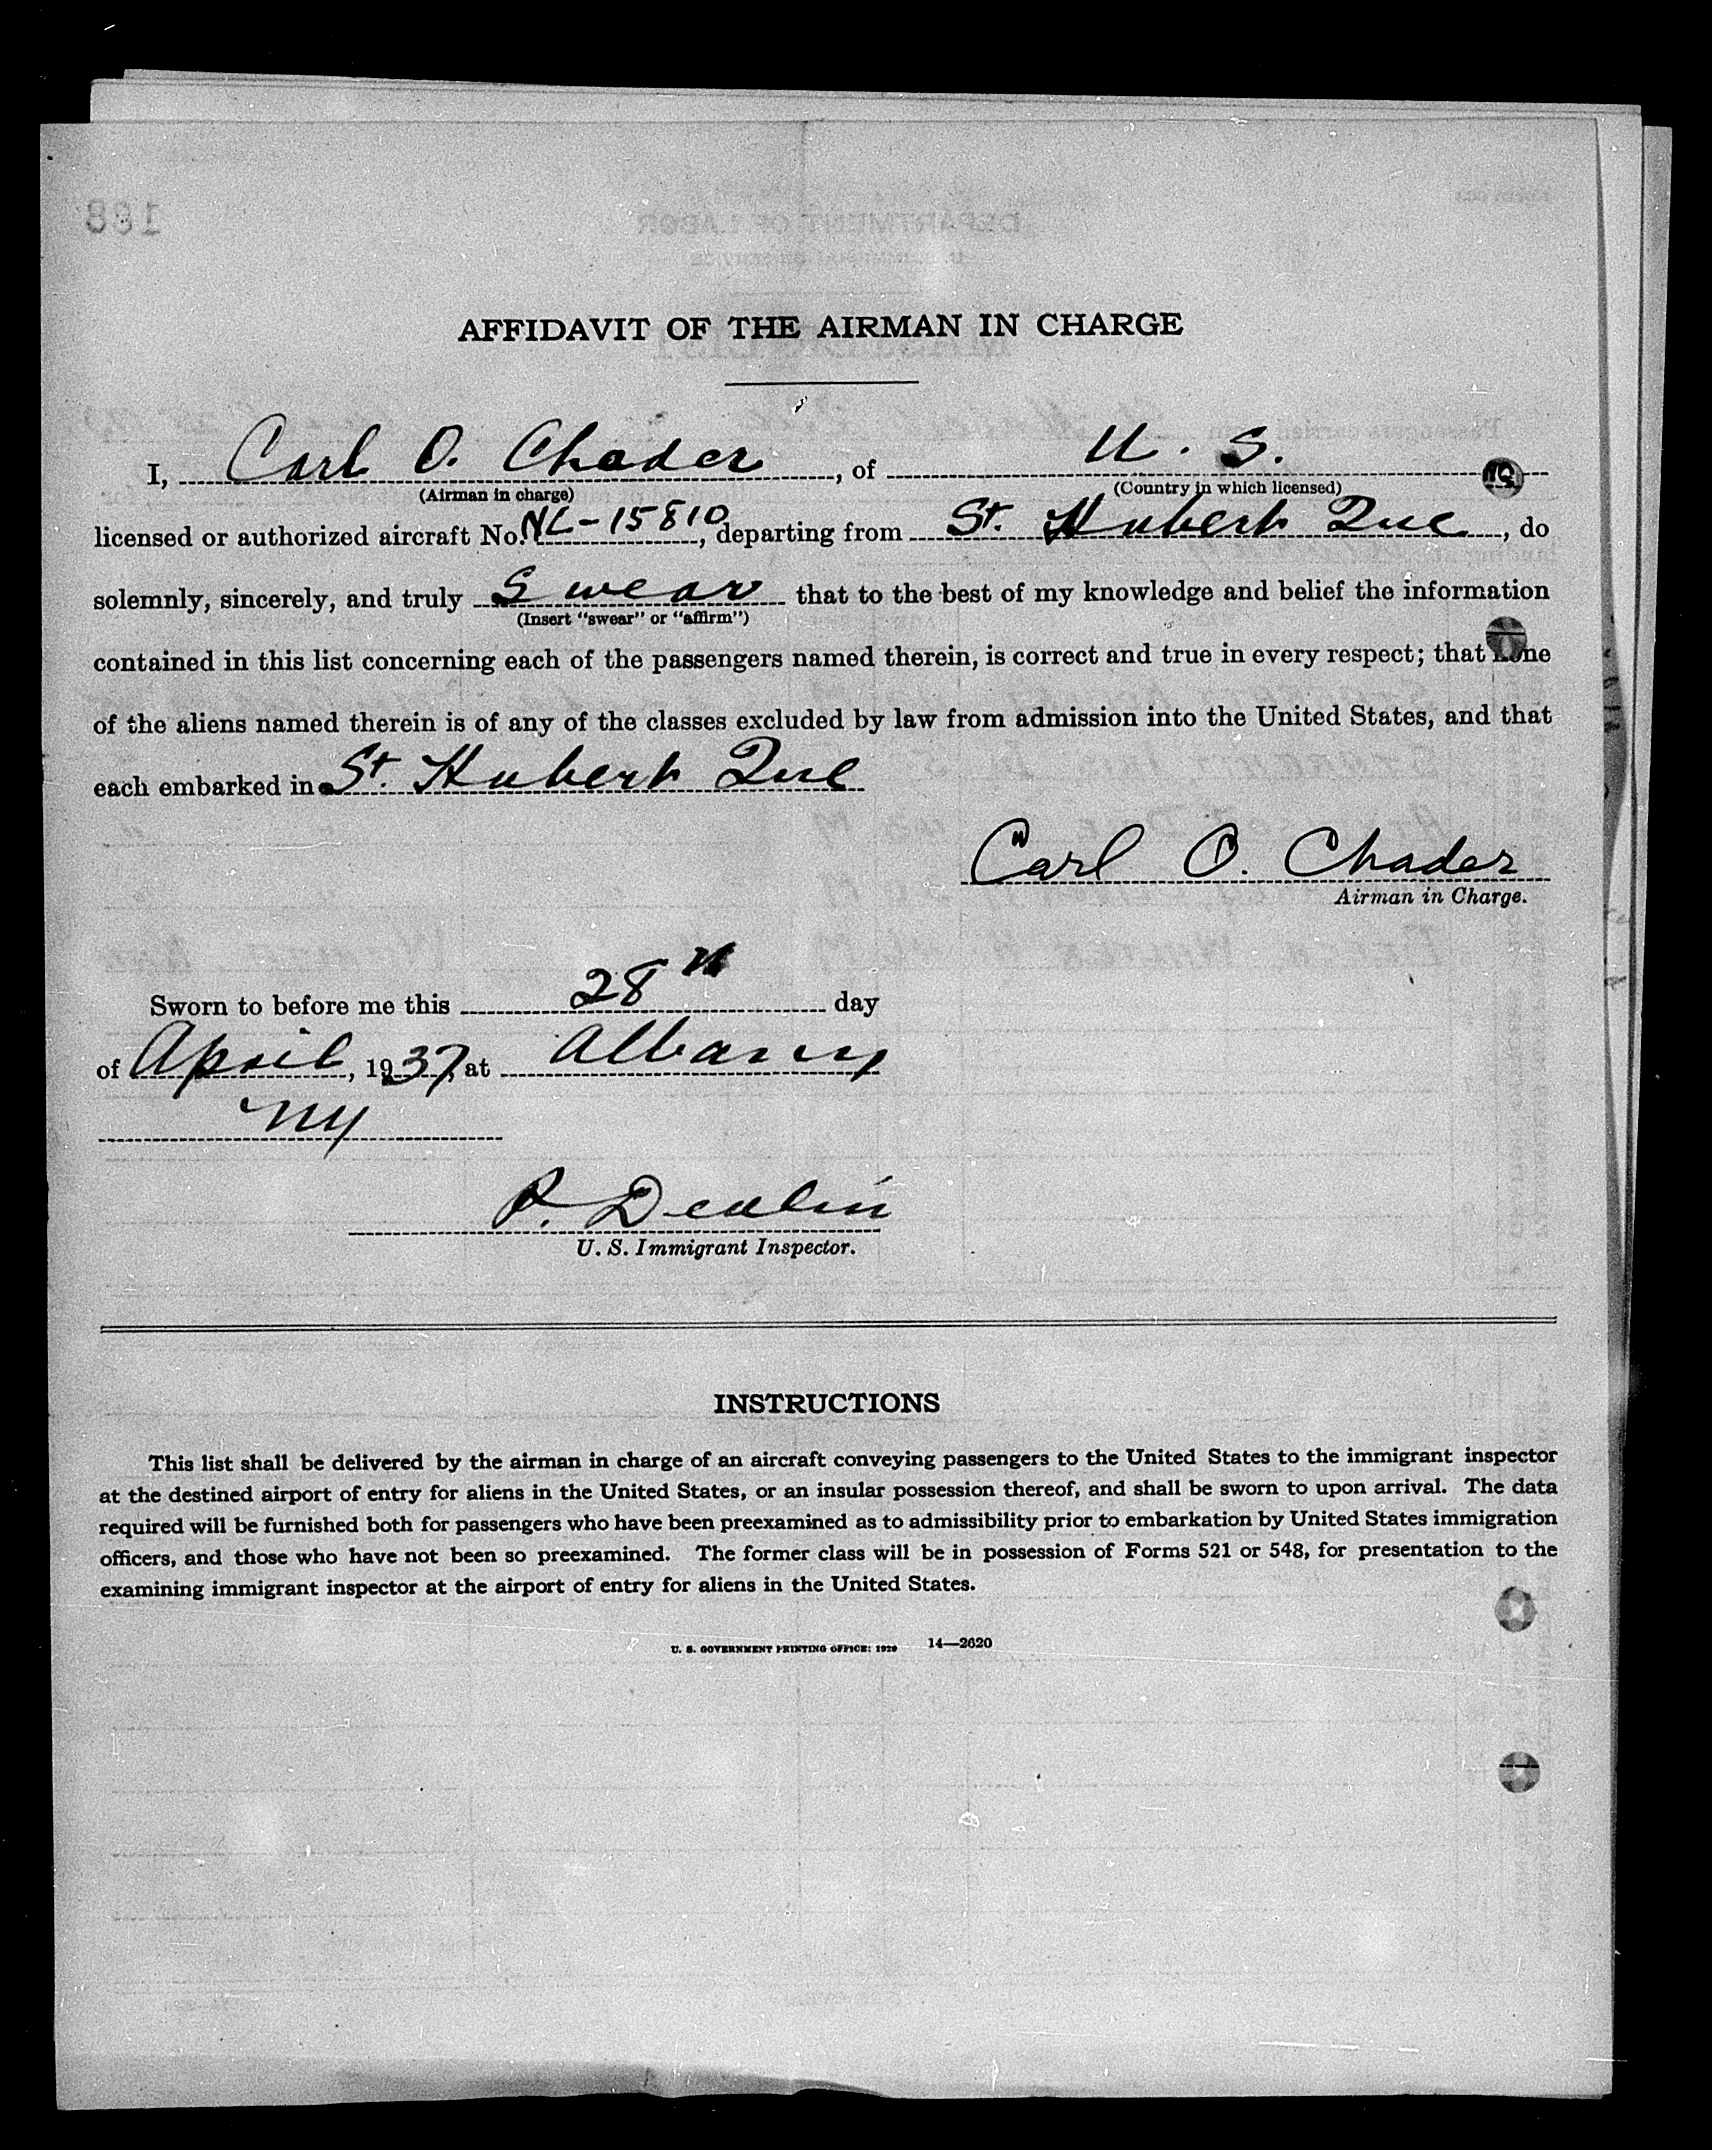 AFFIDAVIT OF THE AIRMAN IN CHARGE
I, Carl O. Chader, of U. S.
(Airman in charge) (Country in which licensed)
licensed or authorized aircraft No. NC-15810, departing from St. Hubert Que, do
solemnly, sincerely, and truly Swear that to the best of my knowledge and belief the information
(Insert "swear" or "affirm")
contained in this list concerning each of the passengers named therein, is correct and true in every respect; that none
of the aliens named therein is of any of the classes excluded by law from admission into the United States, and that
each embarked in St. Hubert Que
Carl O. Chader
Airman in Charge.
Sworn to before me this 28th day
of April, 1937, at Albany
NY
P. Devlin
U. S. Immigrant Inspector.
INSTRUCTIONS
This list shall be delivered by the airman in charge of an aircraft conveying passengers to the United States to the immigrant inspector
at the destined airport of entry for aliens in the United States, or an insular possession thereof, and shall be sworn to upon arrival. The data
required will be furnished both for passengers who have been preexamined as to admissibility prior to embarkation by United States immigration
officers, and those who have not been so preexamined. The former class will be in possession of Forms 521 or 548, for presentation to the
examining immigrant inspector at the airport of entry for aliens in the United States.
U. S. GOVERNMENT PRINTING OFFICE: 1929 14—2620